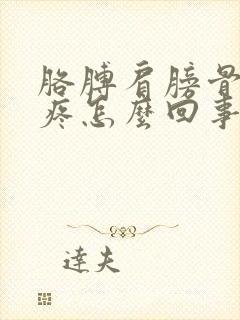 胳膊肩膀骨
疼怎麼回事
達夫